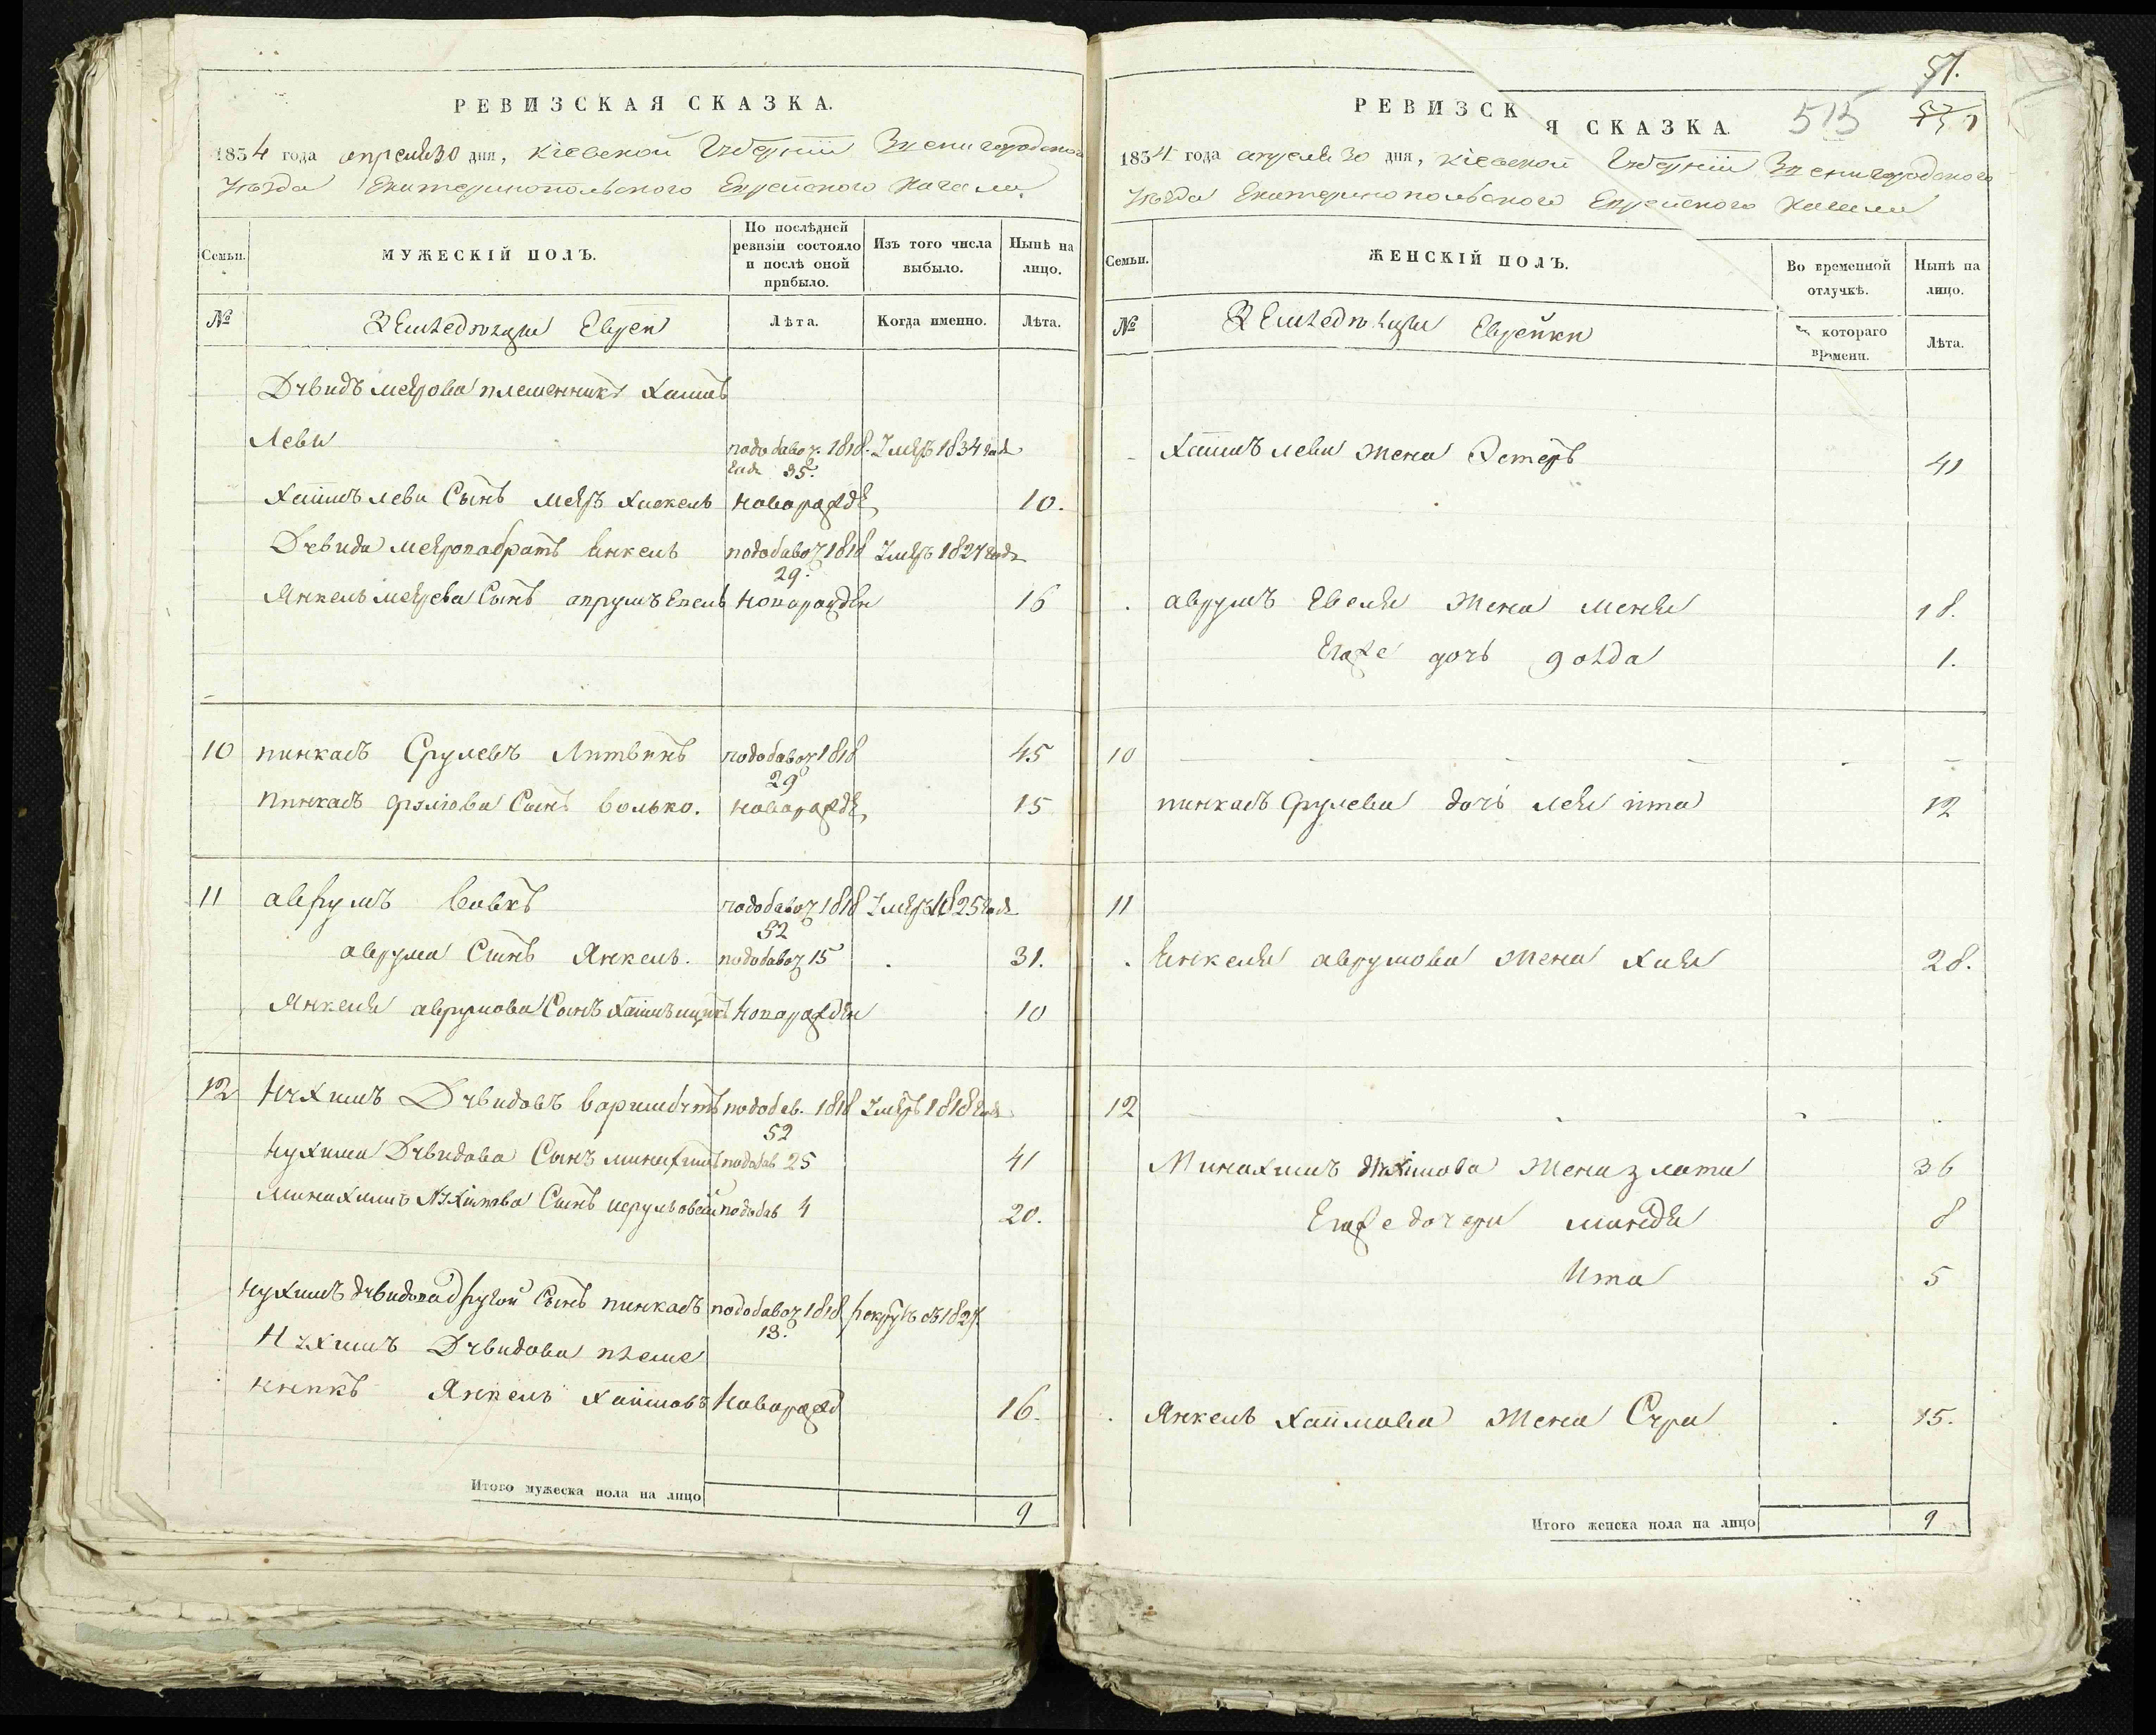 РЕВИЗСКАЯ СКАЗКА.
1834 года апреля 30 дня, Кіевской Губерніи Звенигородского
Уезда Екатеринопольского Еврейского Кагала
Семьи.
МУЖЕСКІЙ ПОЛЪ.
По послѣдней ревизіи состояло и послѣ оной прибыло.
Изъ того числа выбыло.
Нынѣ на лицо.
№
Земледельцы Евреи
Лѣта.
Когда именно.
Лѣта.
Давидъ Меерова племенникъ Хаимъ
Леви подобавоч. 1818. Умеръ 1834 года
35.
Хаимъ Леви Сынъ Мееръ новорожде 10.
Давида Мерова братъ Янкель подобавоч 1818 Умеръ 1827 года
29.
Янкель Меерова Сынъ Аврумъ новорожден 16
10 Пинкасъ Срулевъ Литвинъ подобавоч 1818 45
29
Пинкасъ Сынъ Волько. новорожде 15
11 Аврумъ Вовкъ подобавоч 1818 Умеръ 1825 года
52
Аврума Сынъ Янкель. подобавоч 15 31.
Янкеля Аврумова Сынъ новорожден 10
12 Нухимъ Давидовъ подобав. 1818 Умеръ 1818 года
52
Нухима Давидова Сынъ Минахимъ подобав 25 41
Минахимъ Нухимова Сынъ подобав 4 20.
Нухимъ Давидова другой Сынъ Пинкасъ подобавоч 1818
13.
Нухимъ Давидова племе
нникъ Янкель Хаимовъ новорожд 16.
Итого мужеска пола на лицо 9
57.
РЕВИЗСК Я СКАЗКА. 515
1834 года апреля 30 дня, Кіевской Губерніи Звенигородского
Уезда Екатеринопольского Еврейского Кагала
Семьи.
ЖЕНСКІЙ ПОЛЪ.
Во временной отлучкѣ.
Нынѣ на лицо.
№
Земледельцы Еврейки
котораго времени.
Лѣта.
Хаимъ Леви жена Эстеръ 41
Аврумъ Евеля жена Меня 18.
Егоже дочь Голда 1.
10
Пинкасъ Срулева дочь Лея Ита 12
11
Янкеля Аврумова жена Хая 28.
12
Минахимъ Нухимова жена Злата 36
Егоже дочери Миндя 8
Ита 5
Янкель Хаимова жена Сура 15.
Итого женска пола на лицо 9